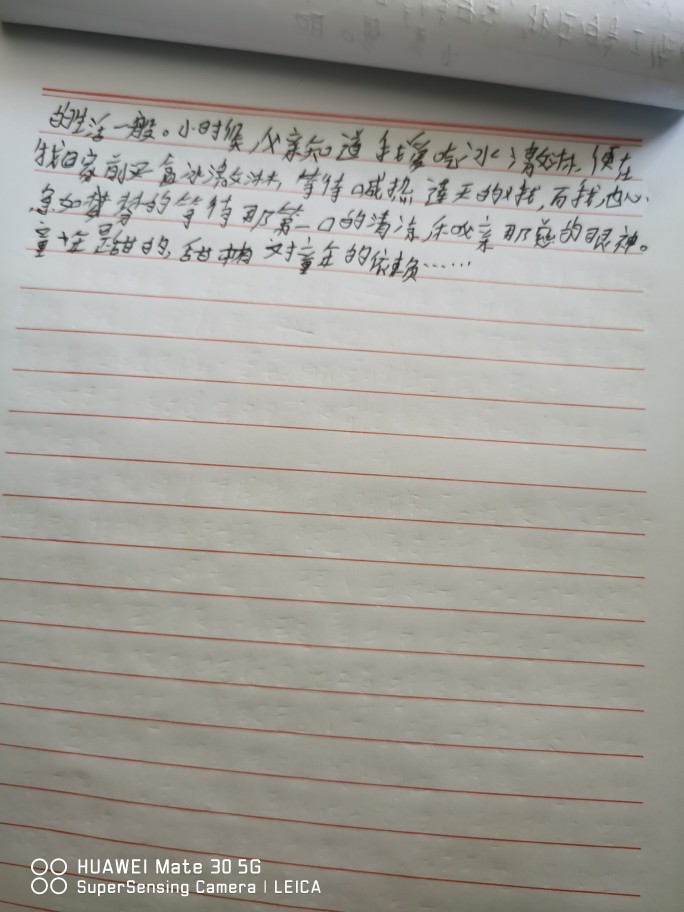 的生活一般。小时候,父亲知道我爱吃冰淇淋,便在
我回家前买盒冰淇淋,等待喊热连天的我,而我也心
急如焚的等待那第一口的清凉和父亲那慈的眼神。
童年是甜的,甜对童年的依赖……
HUAWEI Mate 30 5G
SuperSensing Camera | LEICA